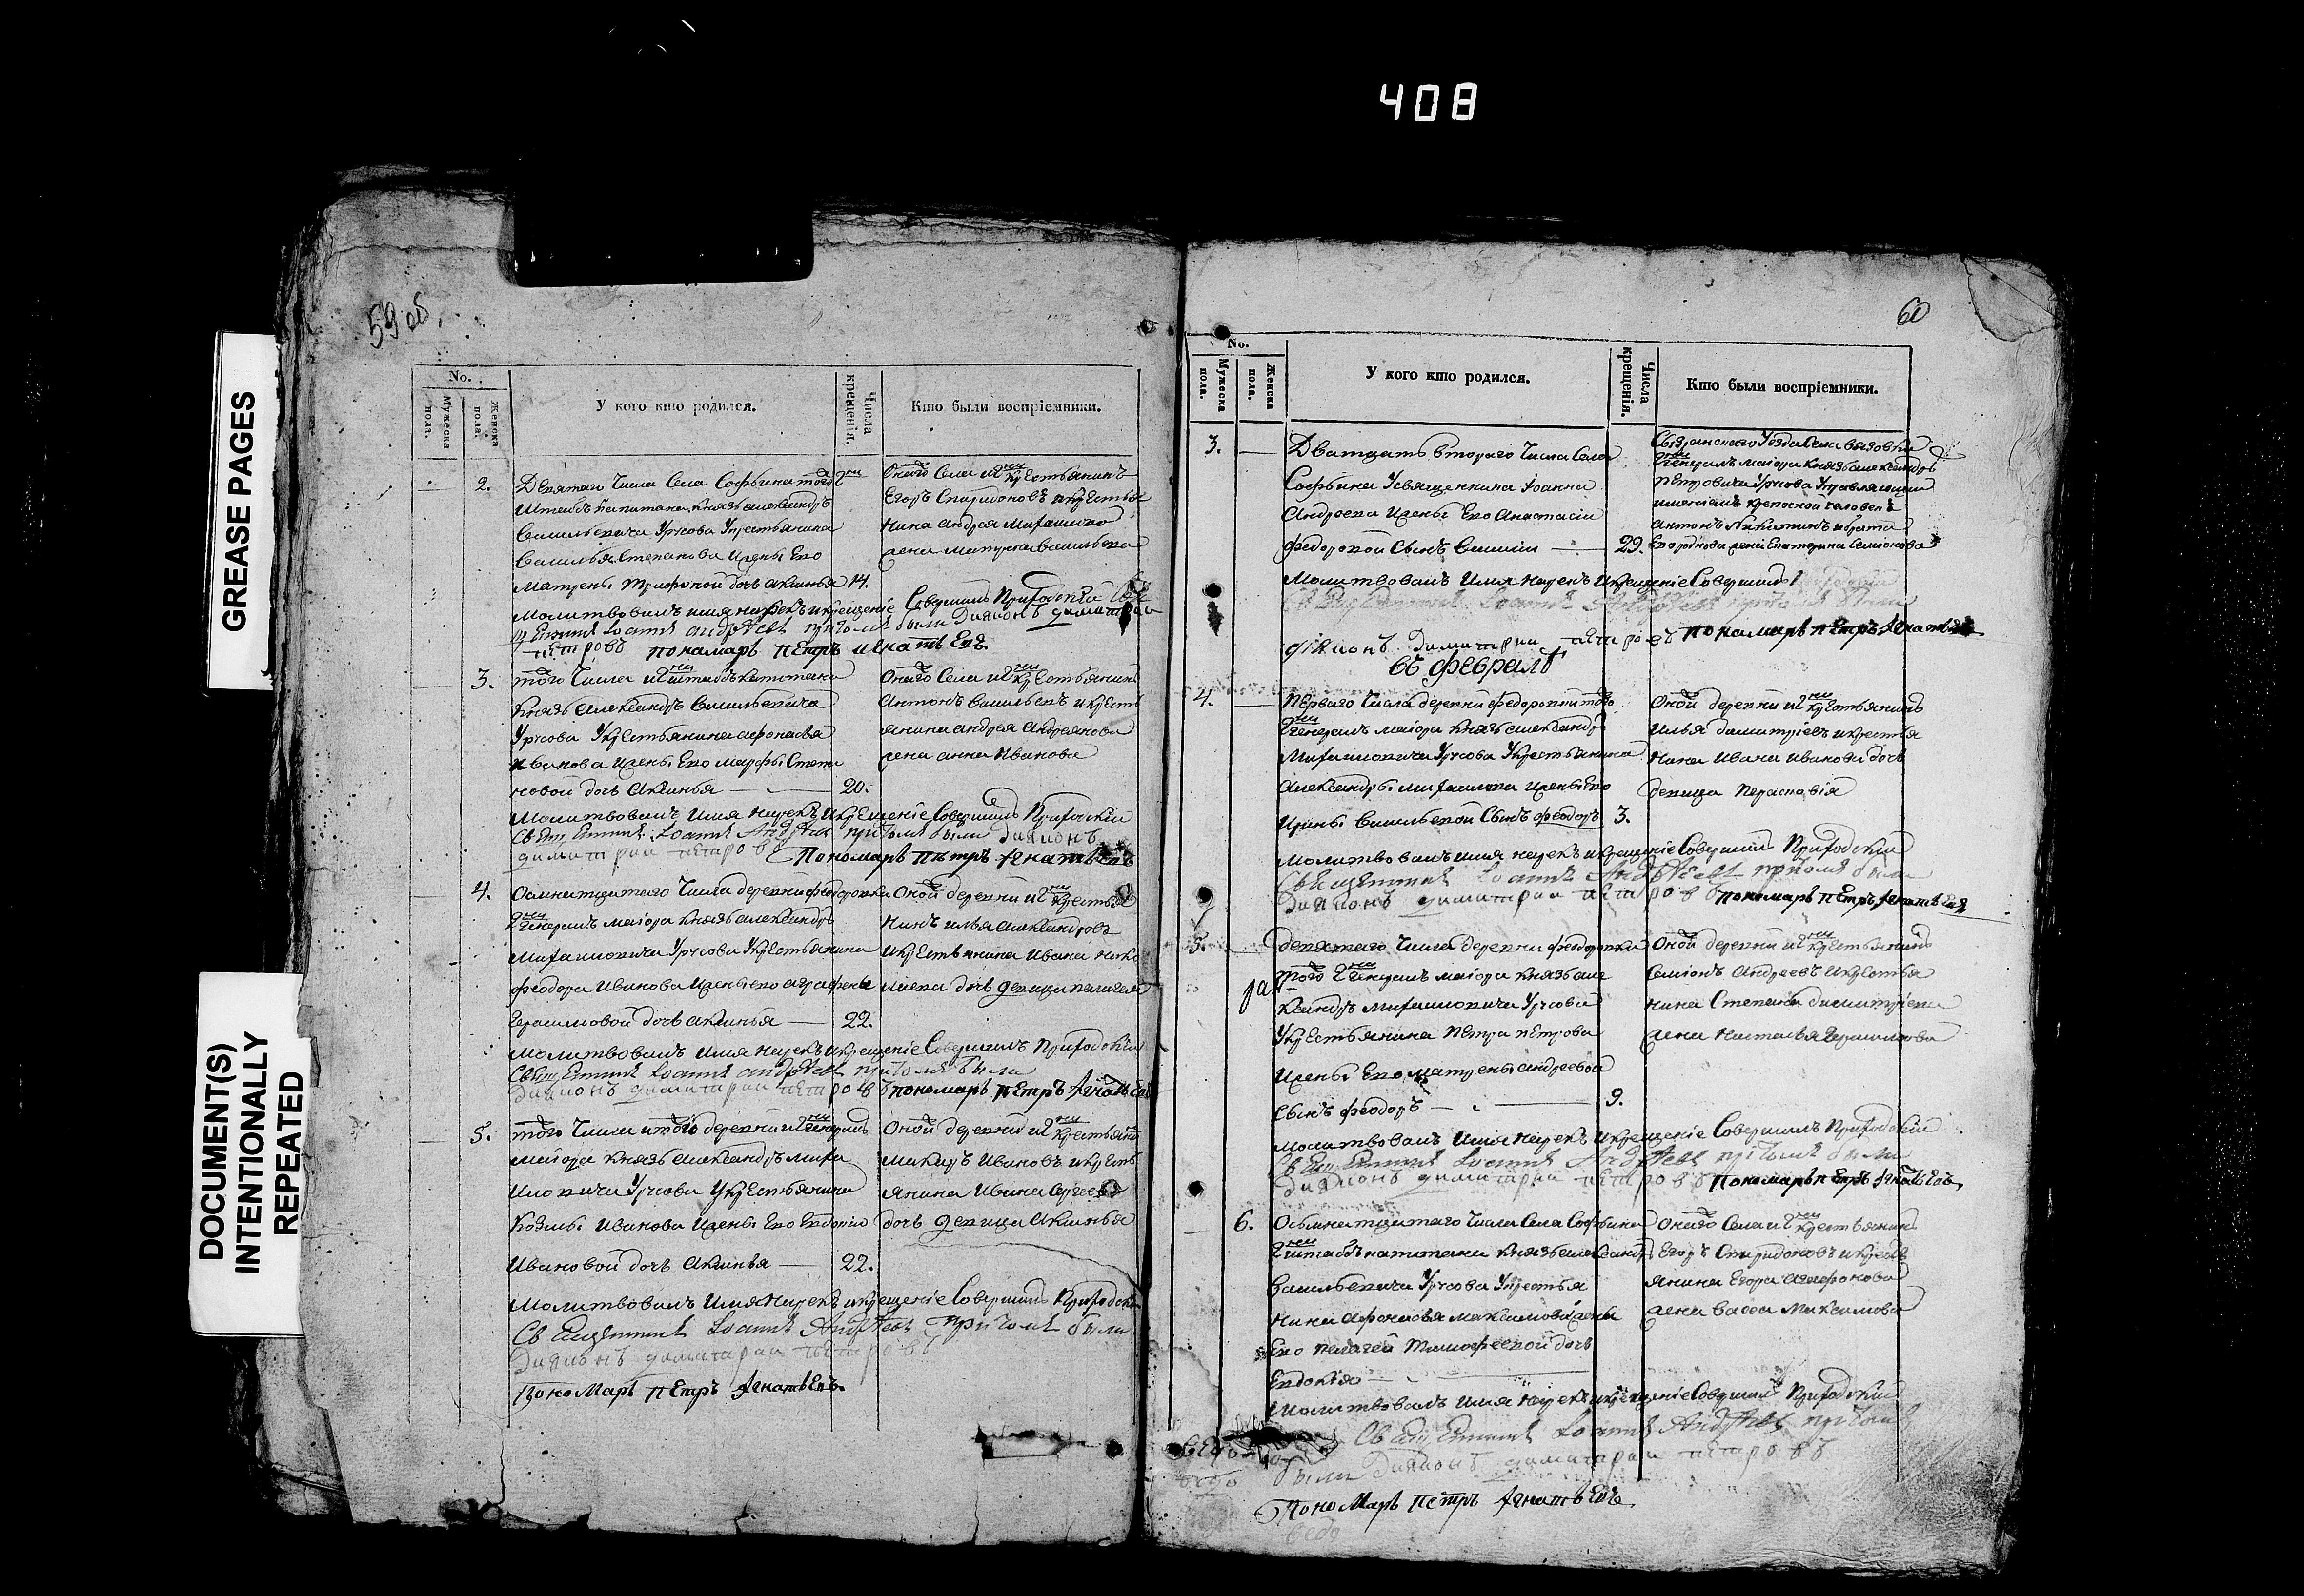 408
GREASE PAGES
DOCUMENT(S)
INTENTIONALLY
REPEATED
59 об.
No.
Мужеска пола.
Женска пола.
У кого кто родился.
Числа крещенія.
Кто были воспріемники.
2.
Девятаго Числа Села Софьина того
Штабсъ капитана Князь александръ
Васильевича Урусова Укрестьянина
Василья Степанова Ижены Его
Матрены Трифоной дочь акилина 14.
Онаго Села крестьянинъ
Егоръ Спиридоновъ икрестья
нина андрея Михайлова
жена Матрена васильева
Молитвовалъ имя нарекъ икрещеніе Совершалъ Приходскій
Іоаннъ андрѣевъ притомъ были Дияконъ димитрии
петровъ пономарь Петръ игнатьевъ
3.
того Числа штабсъ капитана
Князь Александръ Васильевича
Урусова Укрестьянина афонасья
Иванова Ижены Его марфы Степа
новой дочь Акилина 20.
Онаго Села крестьянинъ
Антонъ васильевъ икресть
янина андрея Андреянова
жена анна Иванова
Молитвовалъ Имя нарекъ икрещеніе Совершалъ Приходскій
Священникъ Іоаннъ Андрѣевъ притомъ были Дияконъ
димитрии петровъ Пономарь Петръ Игнатьевъ
4.
Осмнатцатаго Числа деревни федоровки
Генералъ маіора Князь александръ
Михаиловича Урусова Укрестьянина
феодора Иванова Ижены его аграфены
Герасимовой дочь акилина 22.
Оной деревни крестья
нинъ илья александровъ
икрестьянина Ивана
дочь девица пелагея
Молитвовалъ Имя нарекъ икрещеніе Совершалъ Приходскій
Священникъ Іоаннъ андрѣевъ притомъ были
Дияконъ димитрии петровъ пономарь Петръ Игнатьевъ
5.
того Числа итой деревни Генералъ
Маіора Князь Александръ миха
иловича Урусова Укрестьянина
Козьмы Иванова Ижены Его Евдокіи
Ивановой дочь Акилина 22.
Оной деревни крестьянинъ
Макаръ Ивановъ икресть
янина Ивана Сергеева
дочь девица Акилина
Молитвовалъ Имя Нарекъ икрещеніе Совершалъ Приходскій
Священникъ Іоаннъ Андрѣевъ притомъ были
Дияконъ димитрии петровъ
Пономарь Петръ Игнатьевъ
60
No.
Мужеска пола.
Женска пола.
У кого кто родился.
Числа крещенія.
Кто были воспріемники.
3.
Дватцать втораго Числа Села
Софьина Усвященника Іоанна
Андреева Ижены Его Анастасіи
федоровой Сынъ Василій 29.
Сызранскаго Уезда Села
Генералъ маіора Князь александръ
Петровича Урусова Управляющій
имениемъ крепосной человекъ
антонъ Никитинъ ибрата
Екатерина Семионова
Молитвовалъ Имя нарекъ икрещеніе Совершалъ
Іоаннъ Андрѣевъ притомъ были
Дияконъ димитрии петровъ пономарь Петръ Игнатьевъ
въ февралѣ
4.
Перваго Числа деревни федоровки того
Генералъ маіора Князь александръ
Михаиловича Урусова Укрестьянина
Александры Михаилова Ижены Его
Ирины Васильевой Сынъ феодоръ 3.
Оной деревни крестьянинъ
Илья димитріевъ икрестья
нина Ивана иванова дочь
девица Перасковія
Молитвовалъ имя нарекъ икрещеніе Совершалъ Приходскій
Священникъ Іоаннъ Андрѣевъ притомъ были
Дияконъ димитрии петровъ пономарь Петръ Игнатьевъ
5.
девятаго Числа деревни феодоровки
того Генералъ маіора Князь але
ксандръ Михаиловича Урусова
Укрестьянина Петра Петрова
Ижены Его матрены андреевой
Сынъ феодоръ 9.
Оной деревни крестьянинъ
Семіонъ Андреевъ икрестья
нина Степана димитріева
жена Наталья Герасимова
Молитвовалъ Имя нарекъ икрещеніе Совершалъ Приходскій
Священникъ Іоаннъ Андрѣевъ притомъ были
Дияконъ димитрии петровъ Пономарь Петръ Игнатьевъ
6.
Осьмнатцатаго числа Села Софьина
штабсъ капитана Князь александръ
Васильевича Урусова Укрестья
нина афонасья максимова Ижены
Его пелагеи Тимофеевой дочь
Евдокія
Онаго Села крестьянинъ
Егоръ Спиридоновъ икресть
янина Егора агафонова
жена васса Максимова
Молитвовалъ Имя Нарекъ икрещеніе Совершалъ Приходскій
Священникъ Іоаннъ Андрѣевъ притомъ
были Дияконъ димитрии петровъ
Пономарь Петръ Игнатьевъ